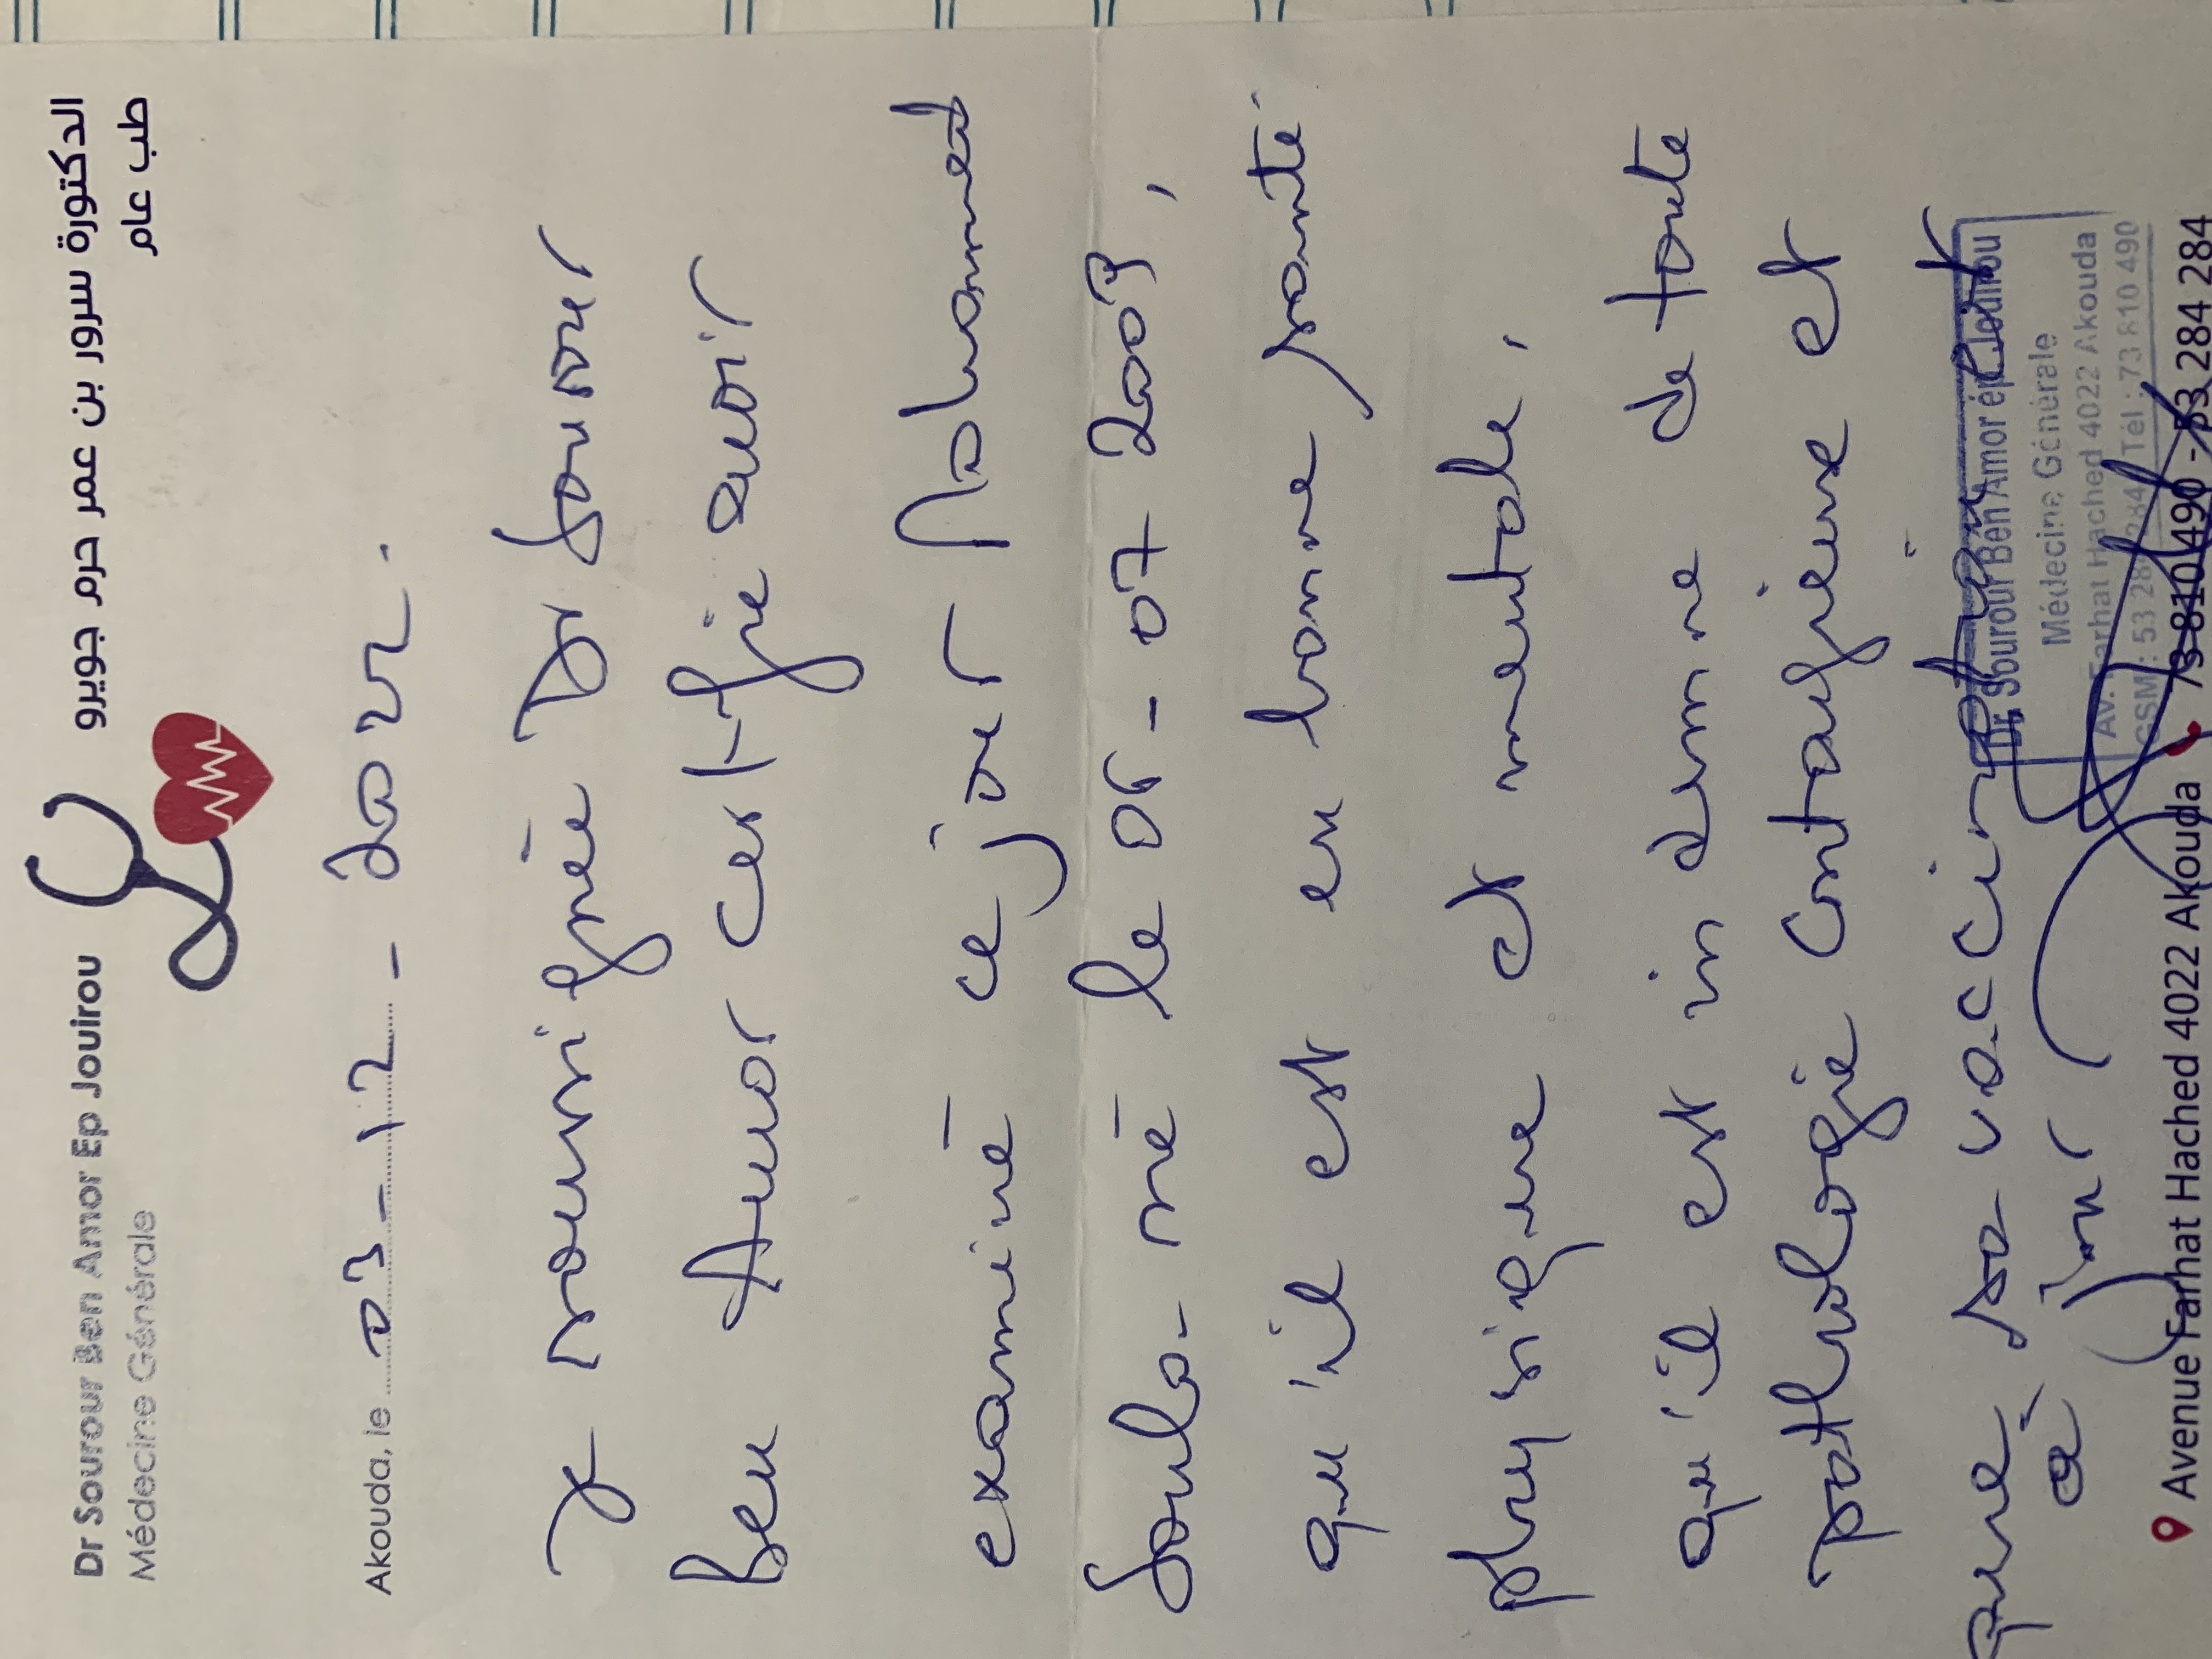 Dr Sourour Ben Amor Ep Jouirou
Médecine Générale
الدكتورة سرور بن عمر حرم جويرو
طب عام
Akouda, le 03-12-2021.
Je soussignée Dr Sourour
Ben Amor certifie avoir
examiné ce jour Mohamed
Soula né le 05-07 2009,
qu'il est en bonne santé
physique et mentale,
qu'il est indemne de toute
pathologie contagieuse et
que sa vaccination est
à jour
Dr Sourour Ben Amor ép Jouirou
Médecine Générale
Av. Farhat Hached 4022 Akouda
GSM : 53 284 284 Tél : 73 810 490
Avenue Farhat Hached 4022 Akouda 73 810 490 - 53 284 284